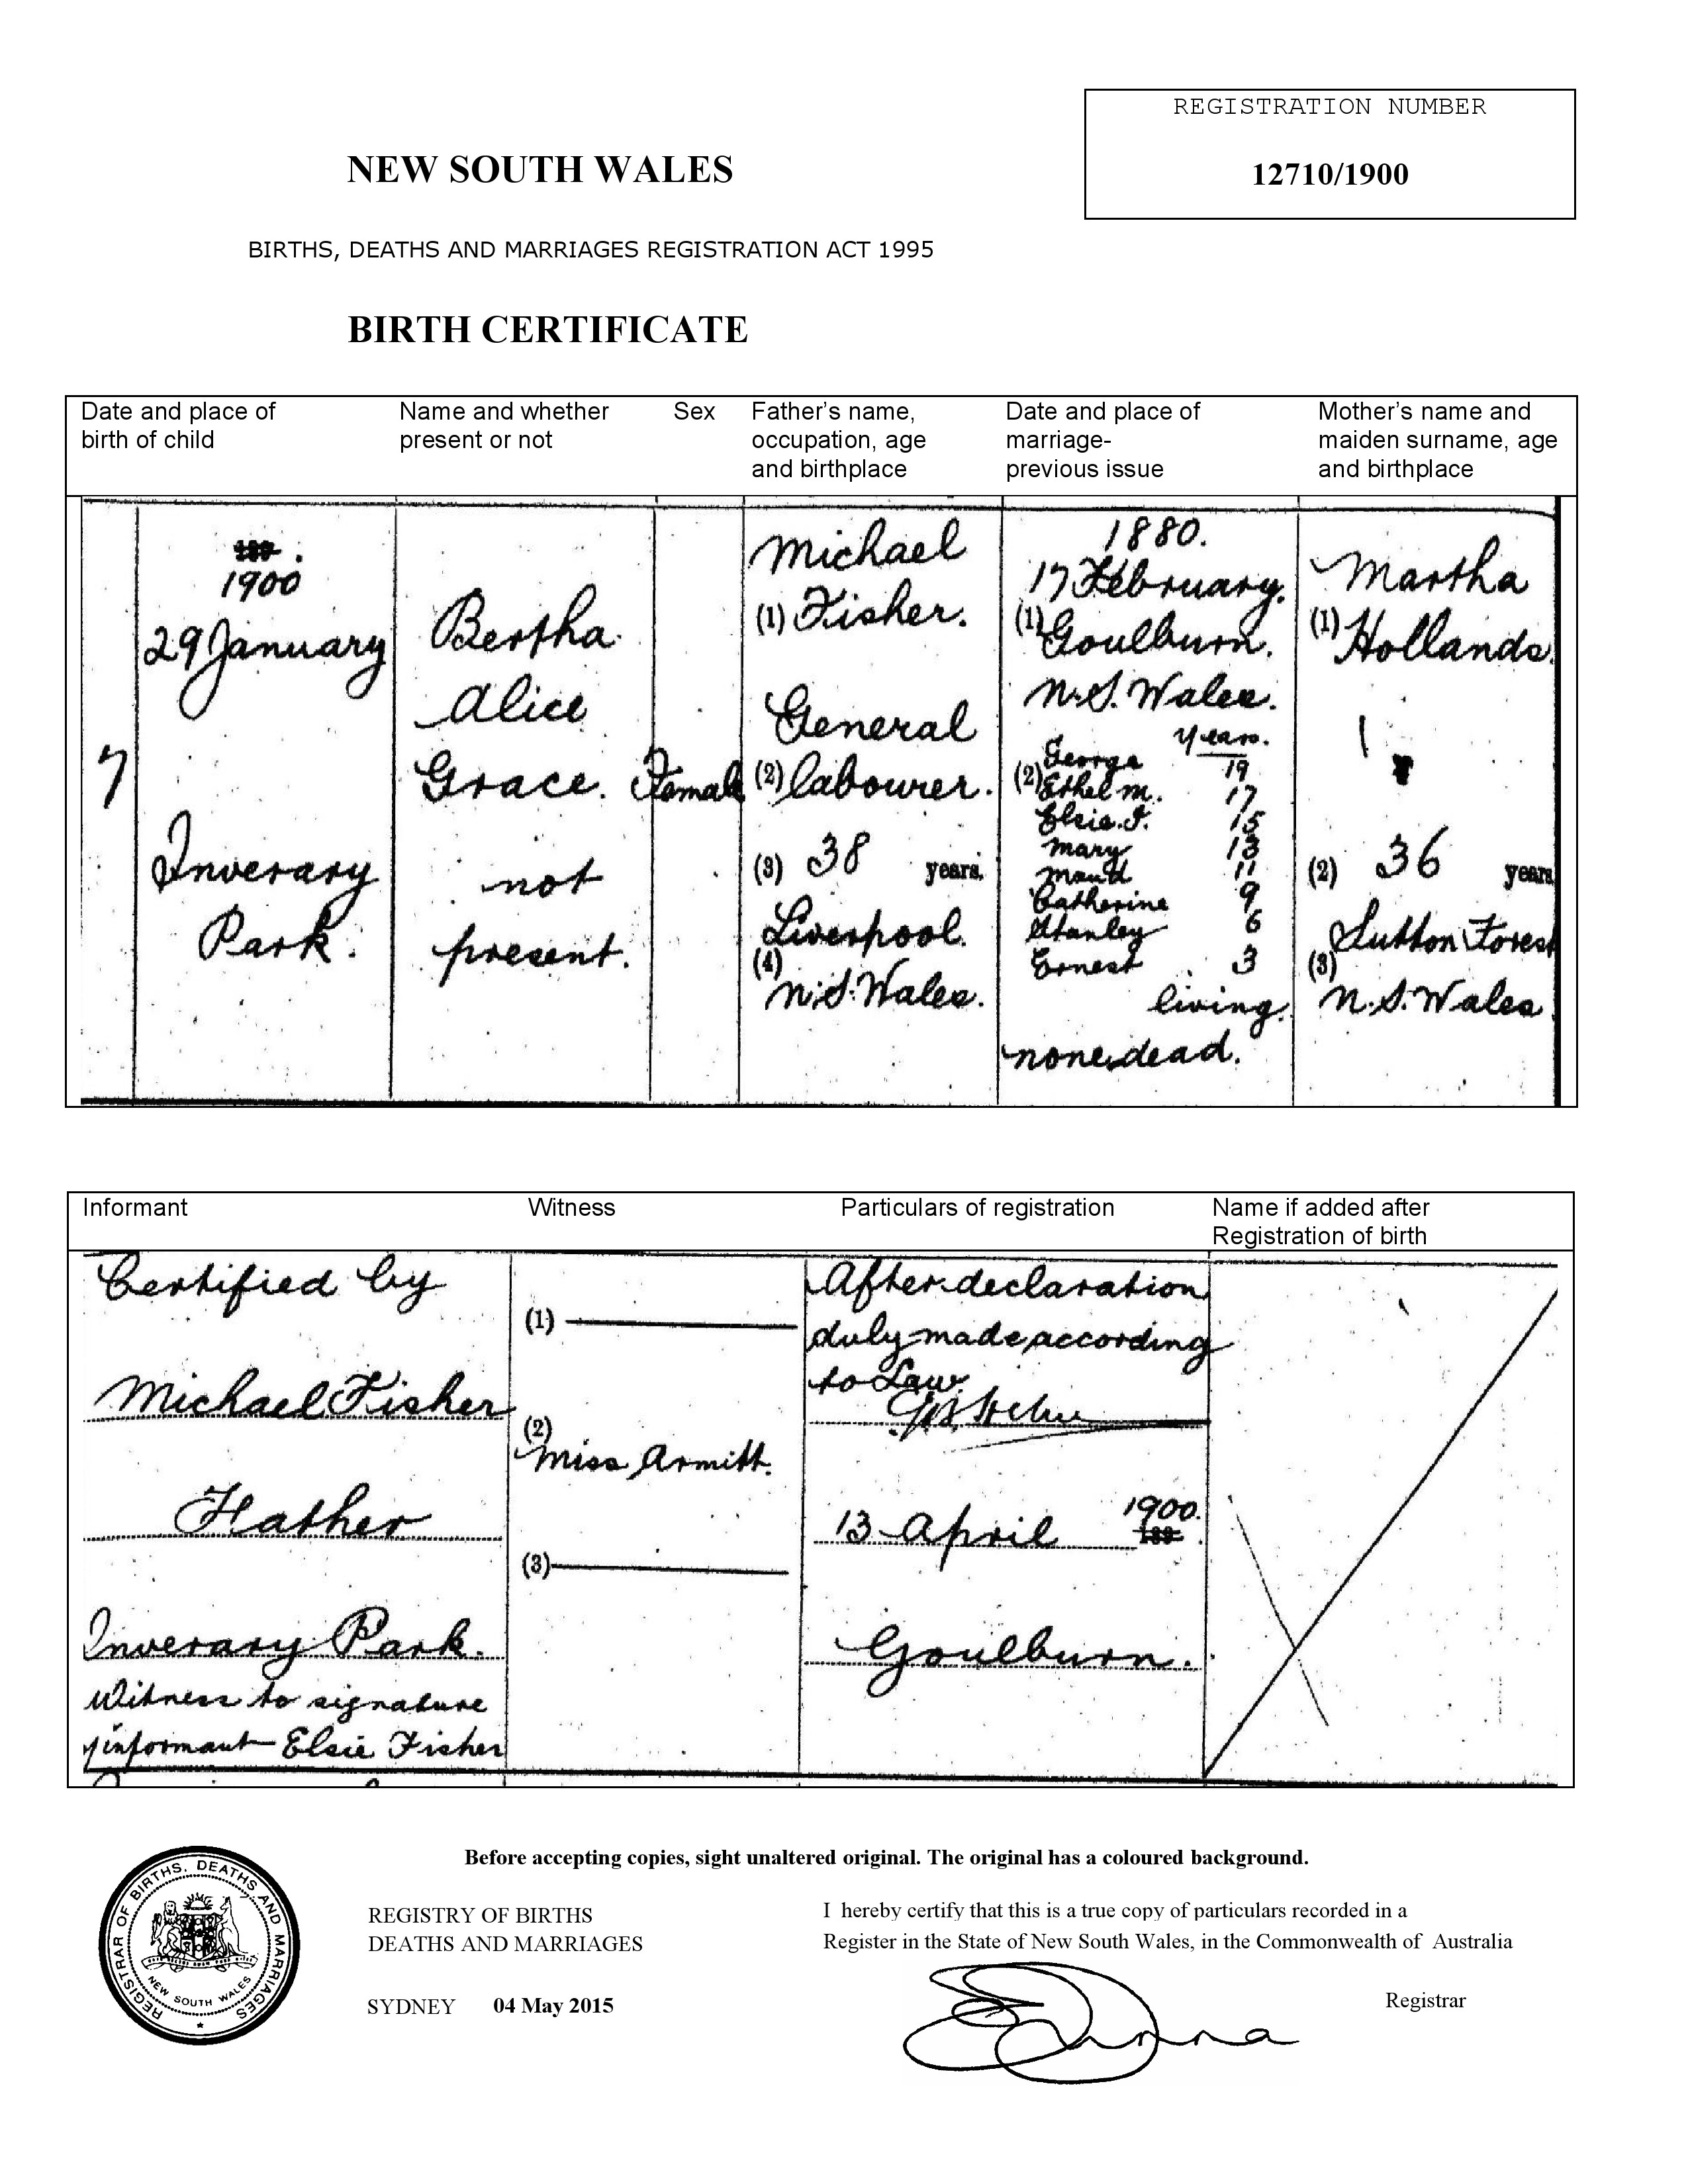 REGISTRATION NUMBER
12710/1900
NEW SOUTH WALES
BIRTHS, DEATHS AND MARRIAGES REGISTRATION ACT 1995
BIRTH CERTIFICATE
Date and place of
birth of child
Name and whether
present or not
Sex
Father's name,
occupation, age
and birthplace
Date and place of
marriage-
previous issue
Mother's name and
maiden surname, age
and birthplace
7
1900
29 January
Inverary
Park.
Bertha
Alice
Grace.
not
present.
Female
Michael
(1) Fisher.
General
(2) labourer.
(3) 38 years.
Liverpool.
(4)
N.S. Wales.
1880.
17 February.
(1) Goulburn.
N.S. Wales.
Years.
George 19
(2) Ethel M. 17
Elsie. I. 15
Mary 13
Maud 11
Catherine 9
Stanley 6
Ernest 3
living.
none dead.
Martha
(1) Hollands.
(2) 36 years
Sutton Forest
(3)
N.S. Wales
Informant
Witness
Particulars of registration
Name if added after
Registration of birth
Certified by
Michael Fisher
Father
Inverary Park.
Witness to signature
informant Elsie Fisher
(1)
(2)
Miss Armitt.
(3)
After declaration
duly made according
to Law.
13 April 1900.
Goulburn.
Before accepting copies, sight unaltered original. The original has a coloured background.
REGISTRAR OF BIRTHS, DEATHS AND MARRIAGES
NEW SOUTH WALES
REGISTRY OF BIRTHS
DEATHS AND MARRIAGES
SYDNEY 04 May 2015
I hereby certify that this is a true copy of particulars recorded in a
Register in the State of New South Wales, in the Commonwealth of Australia
Registrar